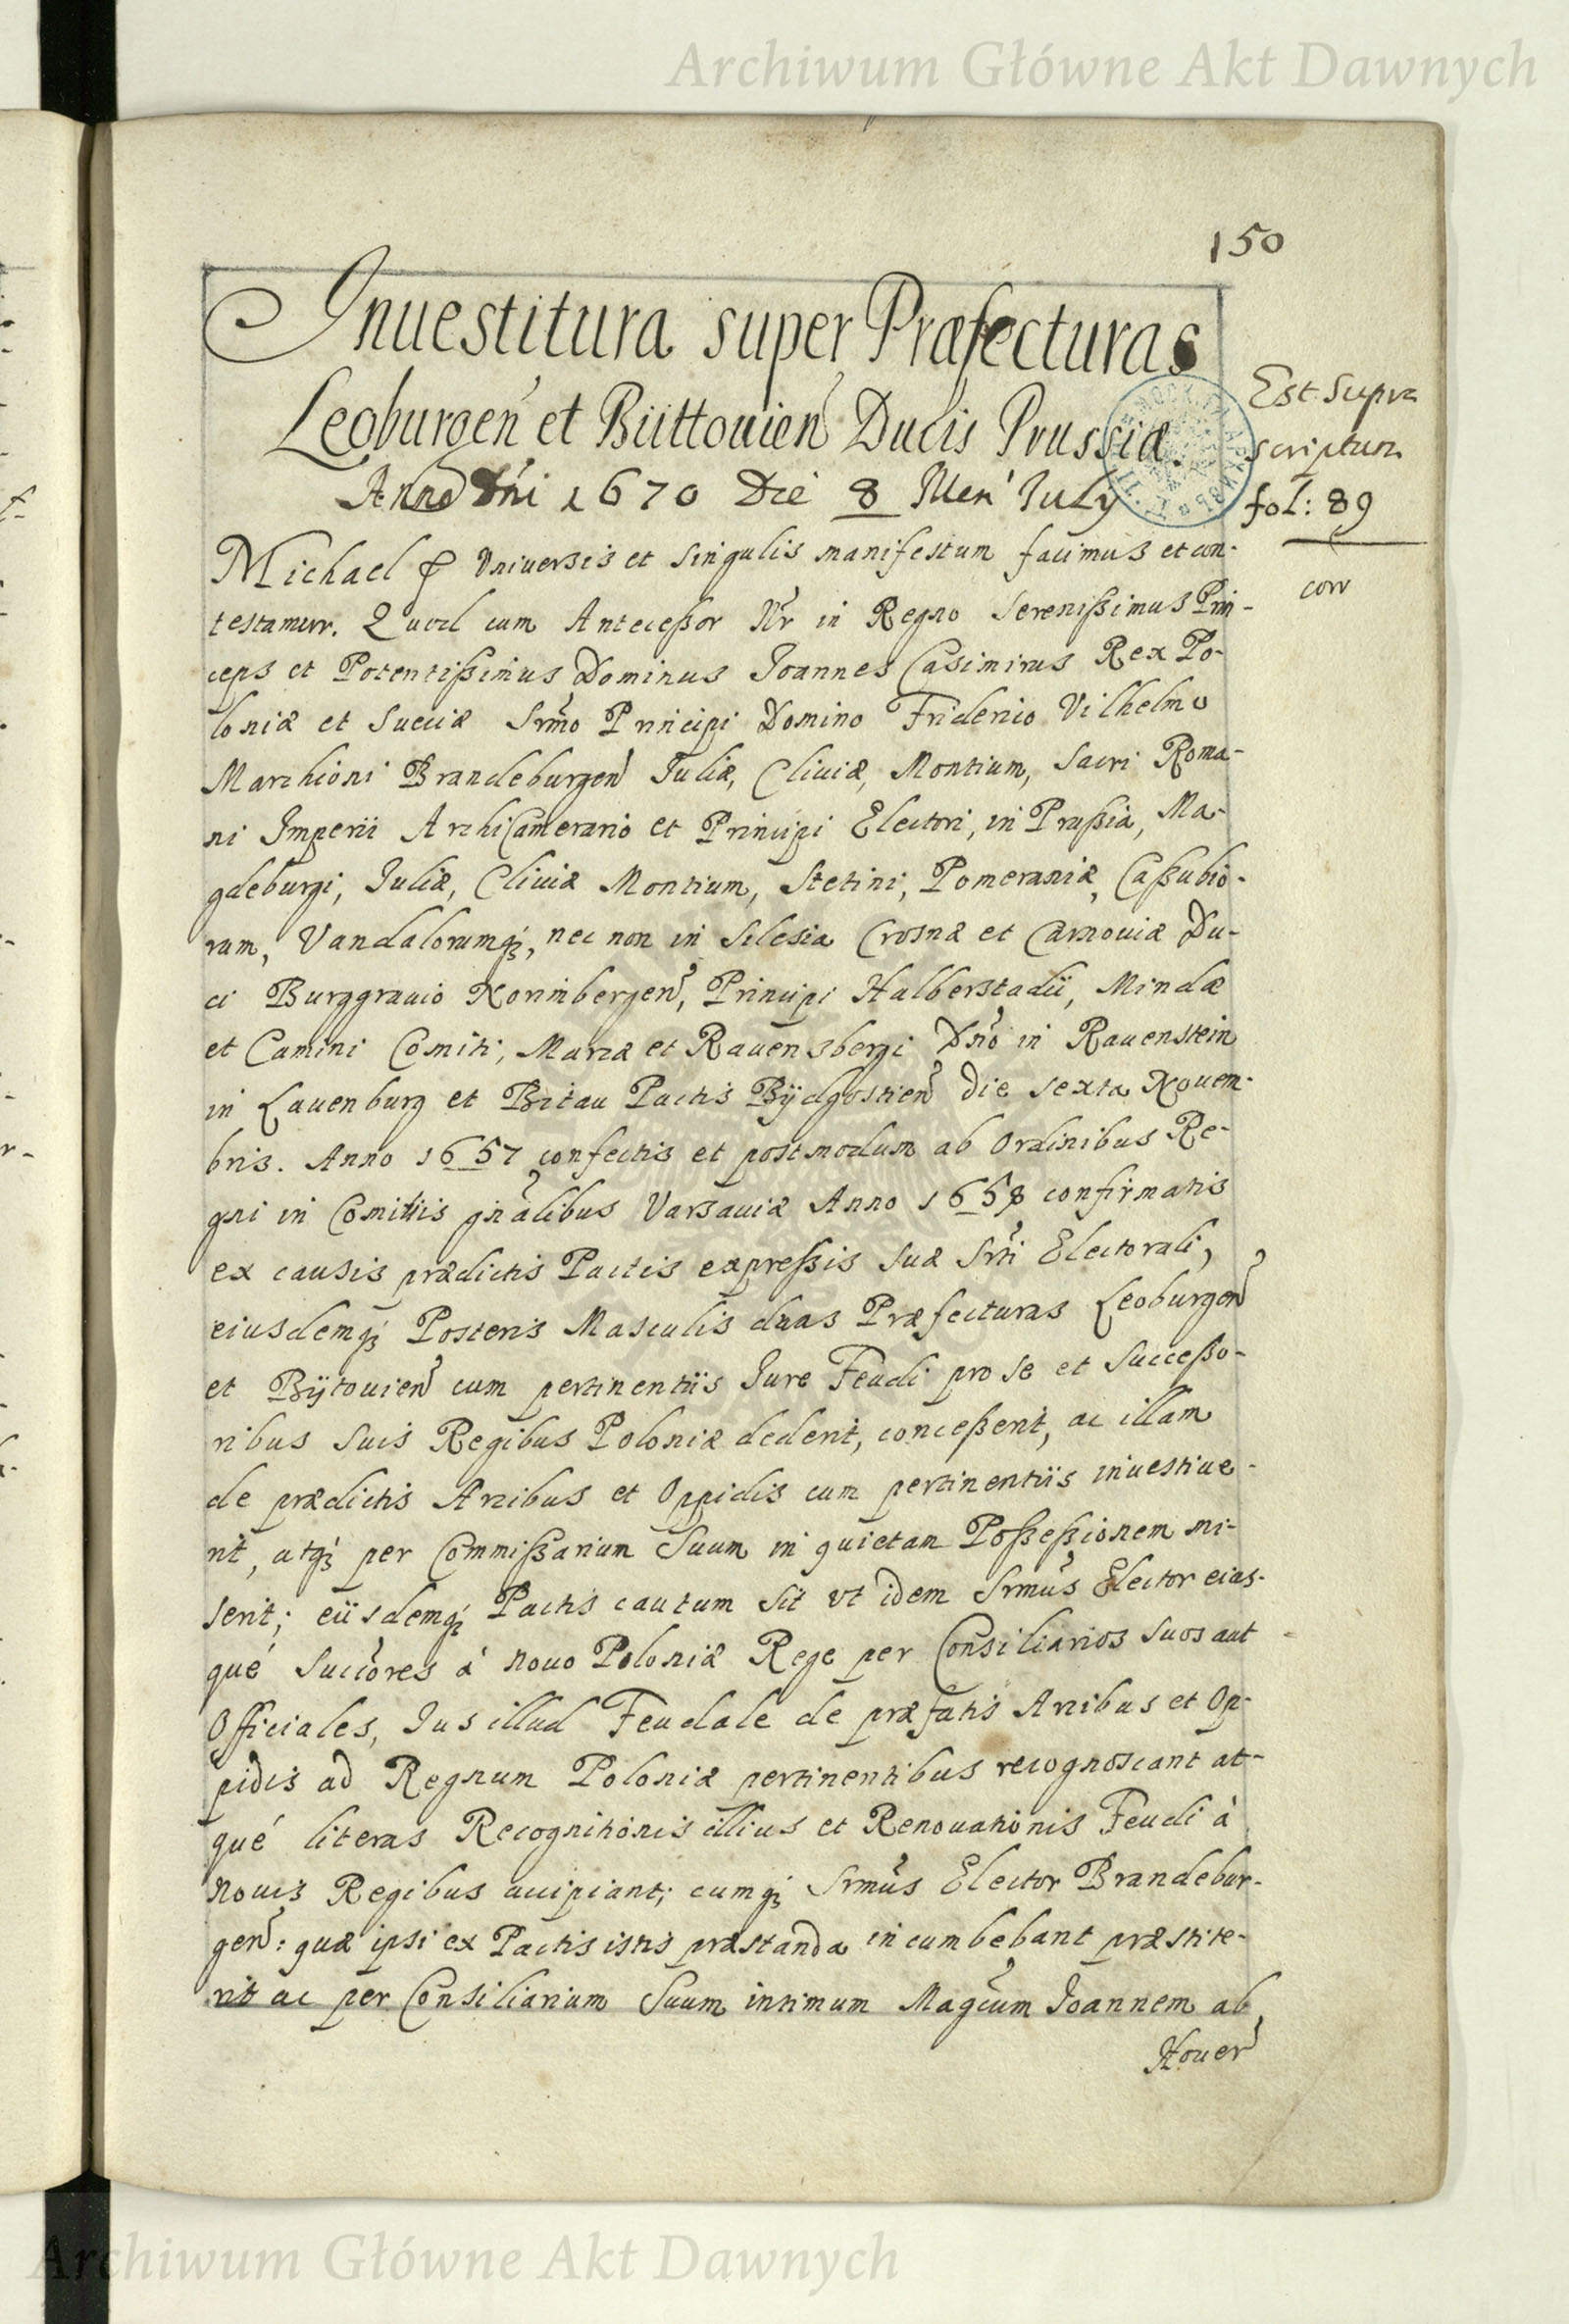 Archiwum Główne Akt Dawnych
150
Inuestitura super Præfecturas
Leoburgen et Büttouien Ducis Prussiæ.
Anno Dni 1670 Die 8 Men July
Est supra
scriptum
fol: 89
corr
Michael Vniuersis et singulis manifestum facimus et con-
testamur. Quod cum Antecessor Nr in Regno Serenissimus Prin-
ceps et Potentissimus Dominus Joannes Casimirus Rex Po-
loniæ et Sueciæ Srmo Principi Domino Friderico Vilhelmo
Marchioni Brandeburgen Juliæ, Cliuiæ, Montium, Sacri Roma-
ni Imperii ArchiCamerario et Principi Electori, in Prussia, Ma-
gdeburgi, Juliæ, Cliuiæ Montium, Stetini, Pomeraniæ, Cassubio-
rum, Vandalorumq, nec non in Silesia Crosnæ et Carnouiæ Du-
ci Burggrauio Norinbergen, Principi Halberstadii, Mindæ
et Camini Comiti, Marcæ et Rauensbergi Dno in Rauenstein
in Lauenburg et Bitau Pactis Bÿdgostien die sexta Nouem-
bris. Anno 1657 confectis et postmodum ab Ordinibus Re-
gni in Comitiis gnalibus Varsauiæ Anno 1658 confirmatis
ex causis prædictis Pactis expressis Suæ Srti Electorali,
eiusdemq Posteris Masculis duas Præfecturas Leoburgen
et Bÿtouien cum pertinentiis Jure Feudi pro se et Successo-
ribus Suis Regibus Poloniæ dederit, concesserit, ac illam
de prædictis Arcibus et Oppidis cum pertinentiis inuestiue-
rit, atq per Commissarium Suum in quietam Possessionem mi-
serit; eiisdemq Pactis cautum sit vt idem Srmus Elector eius-
qué Succores à nouo Poloniæ Rege per Consiliarios suos aut
Officiales, Jus illud Feudale de præfatis Arcibus et Op-
pidis ad Regnum Poloniæ pertinentibus recognoscant at-
qué literas Recognitionis illius et Renouationis Feudi à
nouis Regibus accipiant; cumq Srmus Elector Brandebur-
gen: quæ ipsi ex Pactis istis præstanda incumbebant præstite-
rit ac per Consiliarium Suum intimum Magcum Joannem ab
Houer
Archiwum Główne Akt Dawnych